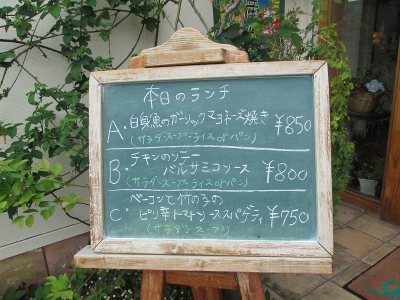 本日のランチ
A・白身魚のガーリックマヨネーズ焼き ¥850
(サラダ・スープ・ライスorパン)
B・チキンのソテー
バルサミコソース ¥800
(サラダ・スープ・ライスorパン)
ベーコンと竹の子の
C・ピリ辛トマトソーススパゲティ ¥750
(サラダ・スープ)